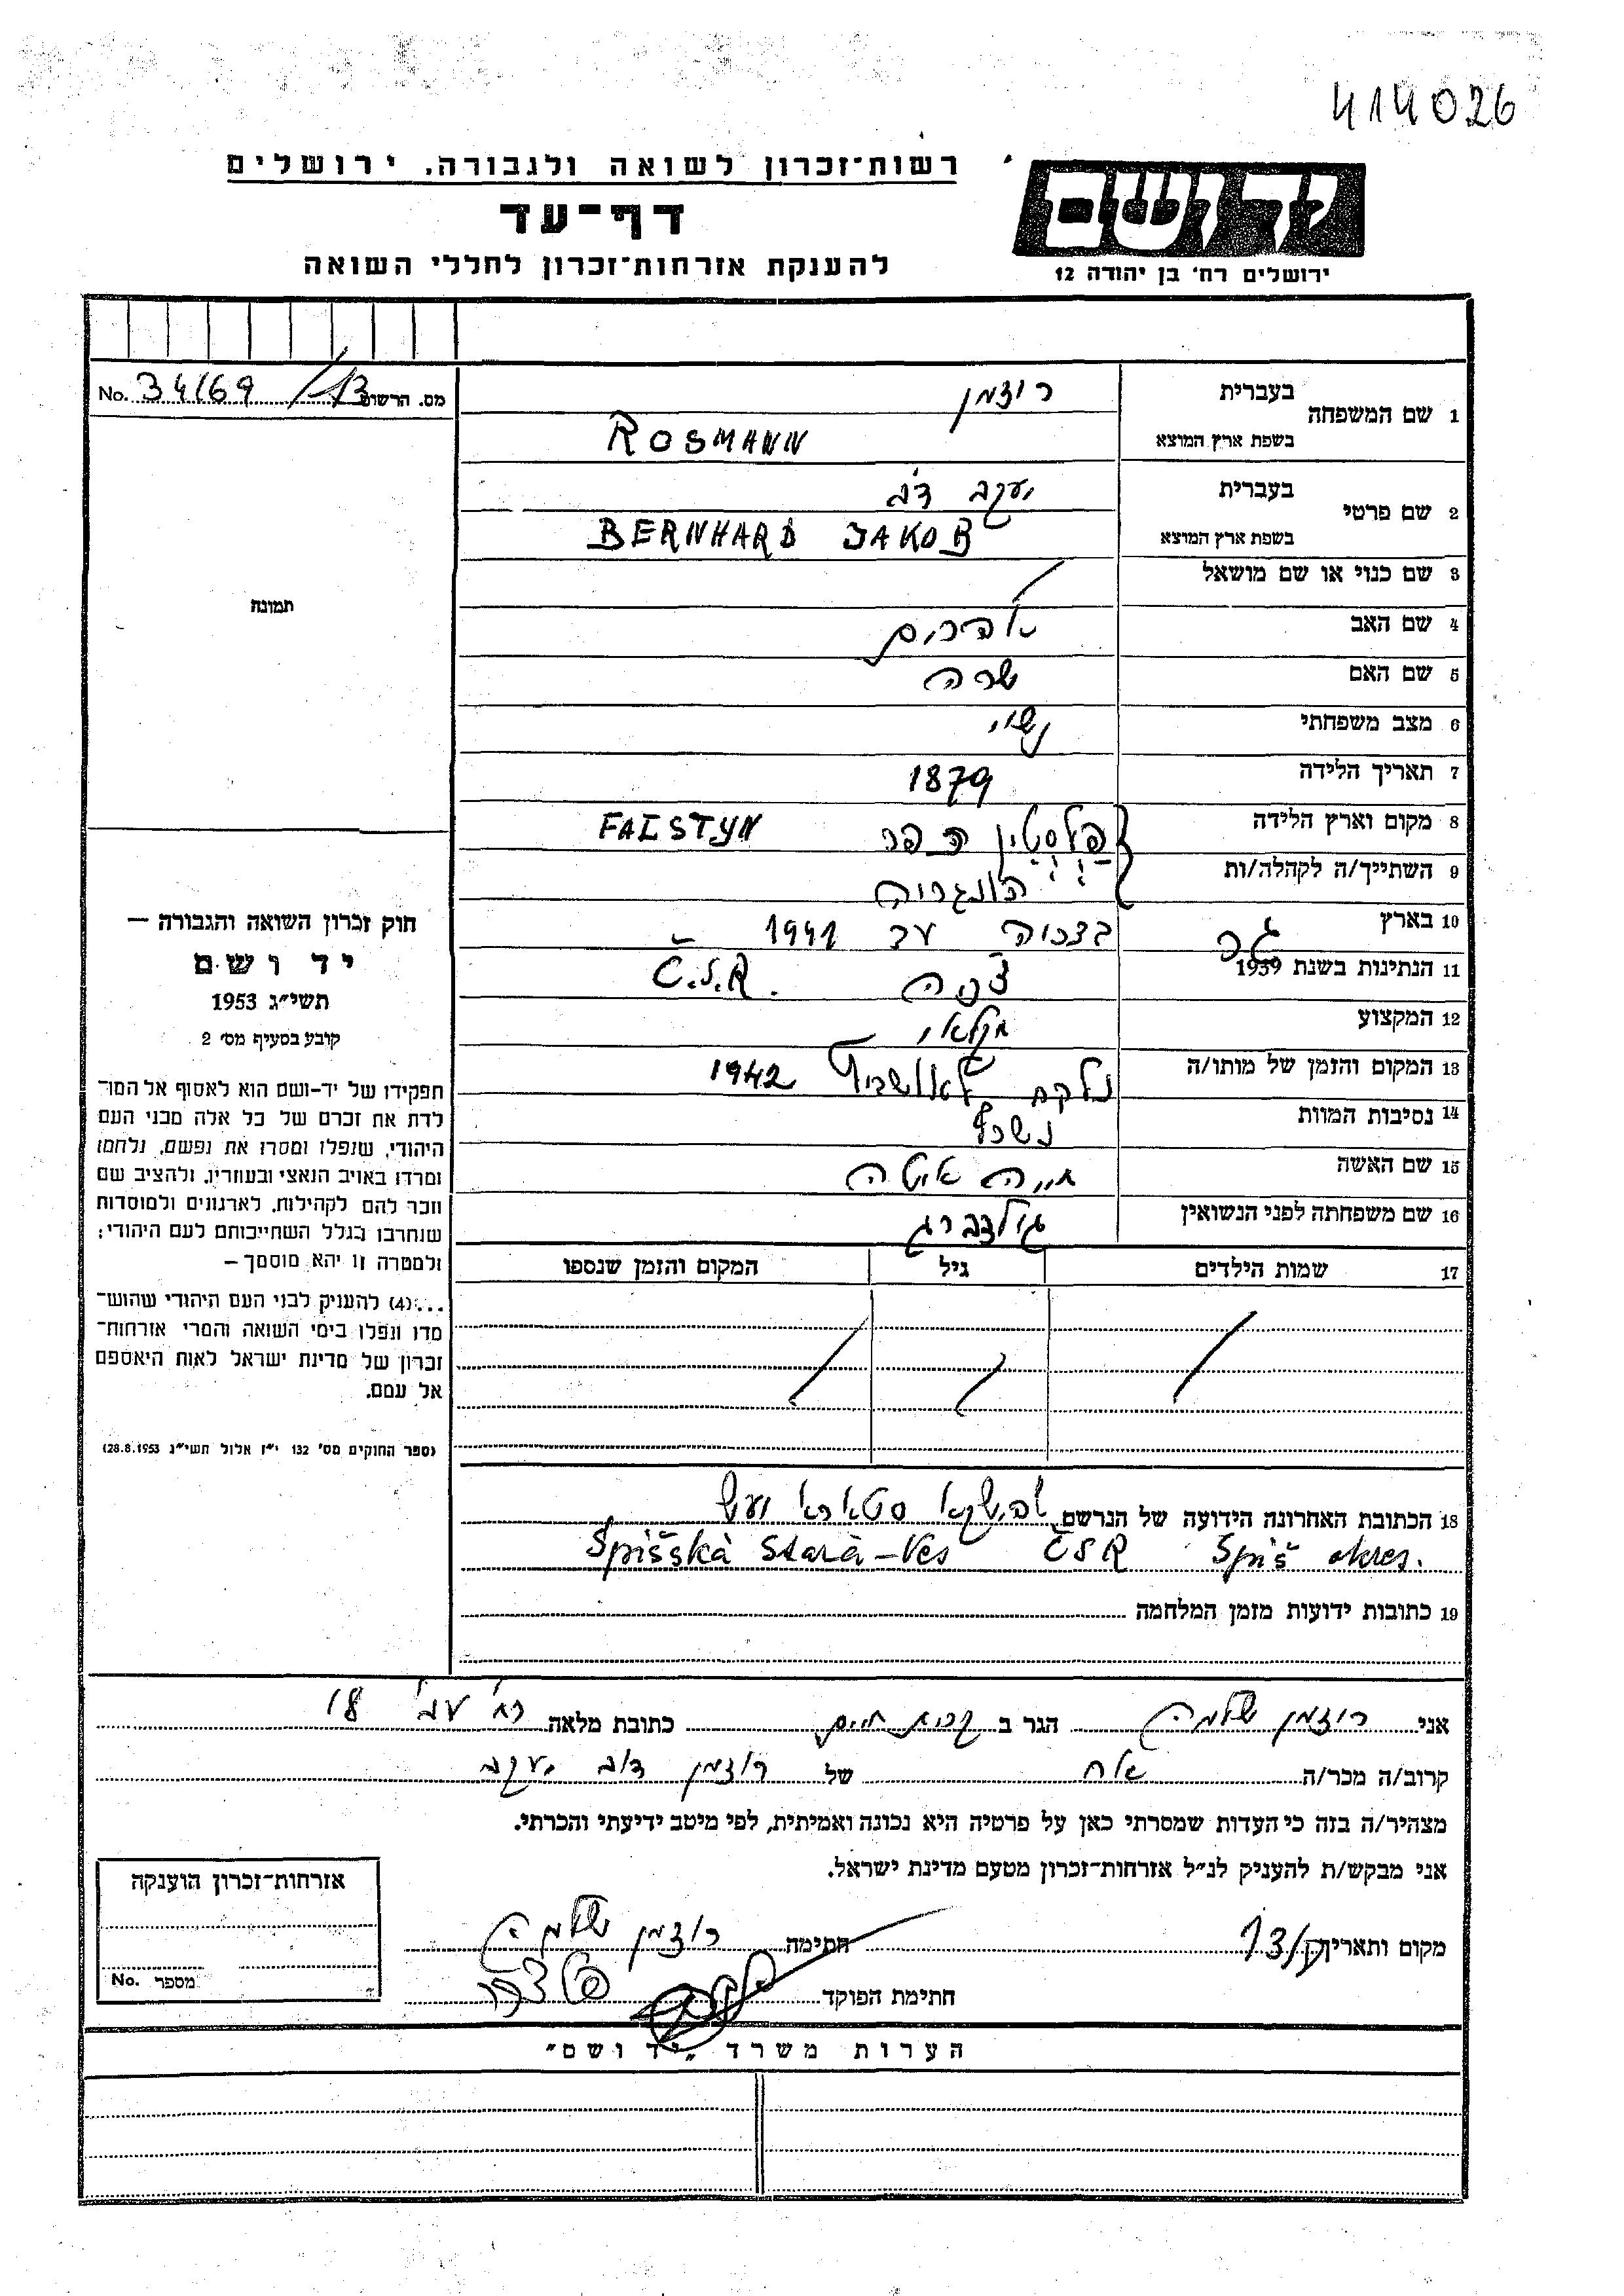 414026
רשות־זכרון לשואה ולגבורה. ירושלים
דף־עד
להענקת אזרחות־זכרון לחללי השואה
יד ושם
ירושלים רח' בן יהודה 12
מס. הרשום 34169 /13 No.
1 שם המשפחה בעברית רוזמן
בשפת ארץ המוצא ROSMANN
2 שם פרטי בעברית יעקב דב
בשפת ארץ המוצא BERNHARD JAKOB
3 שם כנוי או שם מושאל
4 שם האב אברהם
5 שם האם שרה
6 מצב משפחתי נשוי
7 תאריך הלידה 1879
8 מקום וארץ הלידה פלסטין הכפר FALSTYN
9 השתייך/ה לקהלה/ות הונגריה
10 בארץ גר בצכיה עד 1941
11 הנתינות בשנת 1939 צכיה Č.S.R.
12 המקצוע חקלאי
13 המקום והזמן של מותו/ה נלקח לאושויץ 1942
14 נסיבות המוות נשרף
15 שם האשה חיה איטה
16 שם משפחתה לפני הנשואין גולדברג
17 שמות הילדים גיל המקום והזמן שנספו
18 הכתובת האחרונה הידועה של הנרשם סטארא ועש
Spišská Stará-Ves ČSR Spiš okres.
19 כתובות ידועות מזמן המלחמה
תמונה
חוק זכרון השואה והגבורה —
יד ושם
תשי״ג 1953
קובע בסעיף מס׳ 2
תפקידו של יד-ושם הוא לאסוף אל המו־
לדת את זכרם של כל אלה מבני העם
היהודי, שנפלו ומסרו את נפשם, נלחמו
ומרדו באויב הנאצי ובעוזריו, ולהציב שם
וזכר להם לקהילות, לארגונים ולמוסדות
שנחרבו בגלל השתייכותם לעם היהודי;
ולמטרה זו יהא מוסמך —
...(4) להעניק לבני העם היהודי שהוש־
מדו ונפלו בימי השואה והמרי אזרחות־
זכרון של מדינת ישראל לאות היאספם
אל עמם.
(ספר החוקים מס׳ 132 י״ז אלול תשי״ג 28.8.1953)
אני רוזמן שלמה הגר ב קרית חיים כתובת מלאה רח' 18
קרוב/ה מכר/ה אח של רוזמן דוב יעקב
מצהיר/ה בזה כי העדות שמסרתי כאן על פרטיה היא נכונה ואמיתית, לפי מיטב ידיעתי והכרתי.
אני מבקש/ת להעניק לנ״ל אזרחות־זכרון מטעם מדינת ישראל.
מקום ותאריך חתימה רוזמן שלמה
חתימת הפוקד
אזרחות־זכרון הוענקה
מספר No.
הערות משרד „יד ושם״